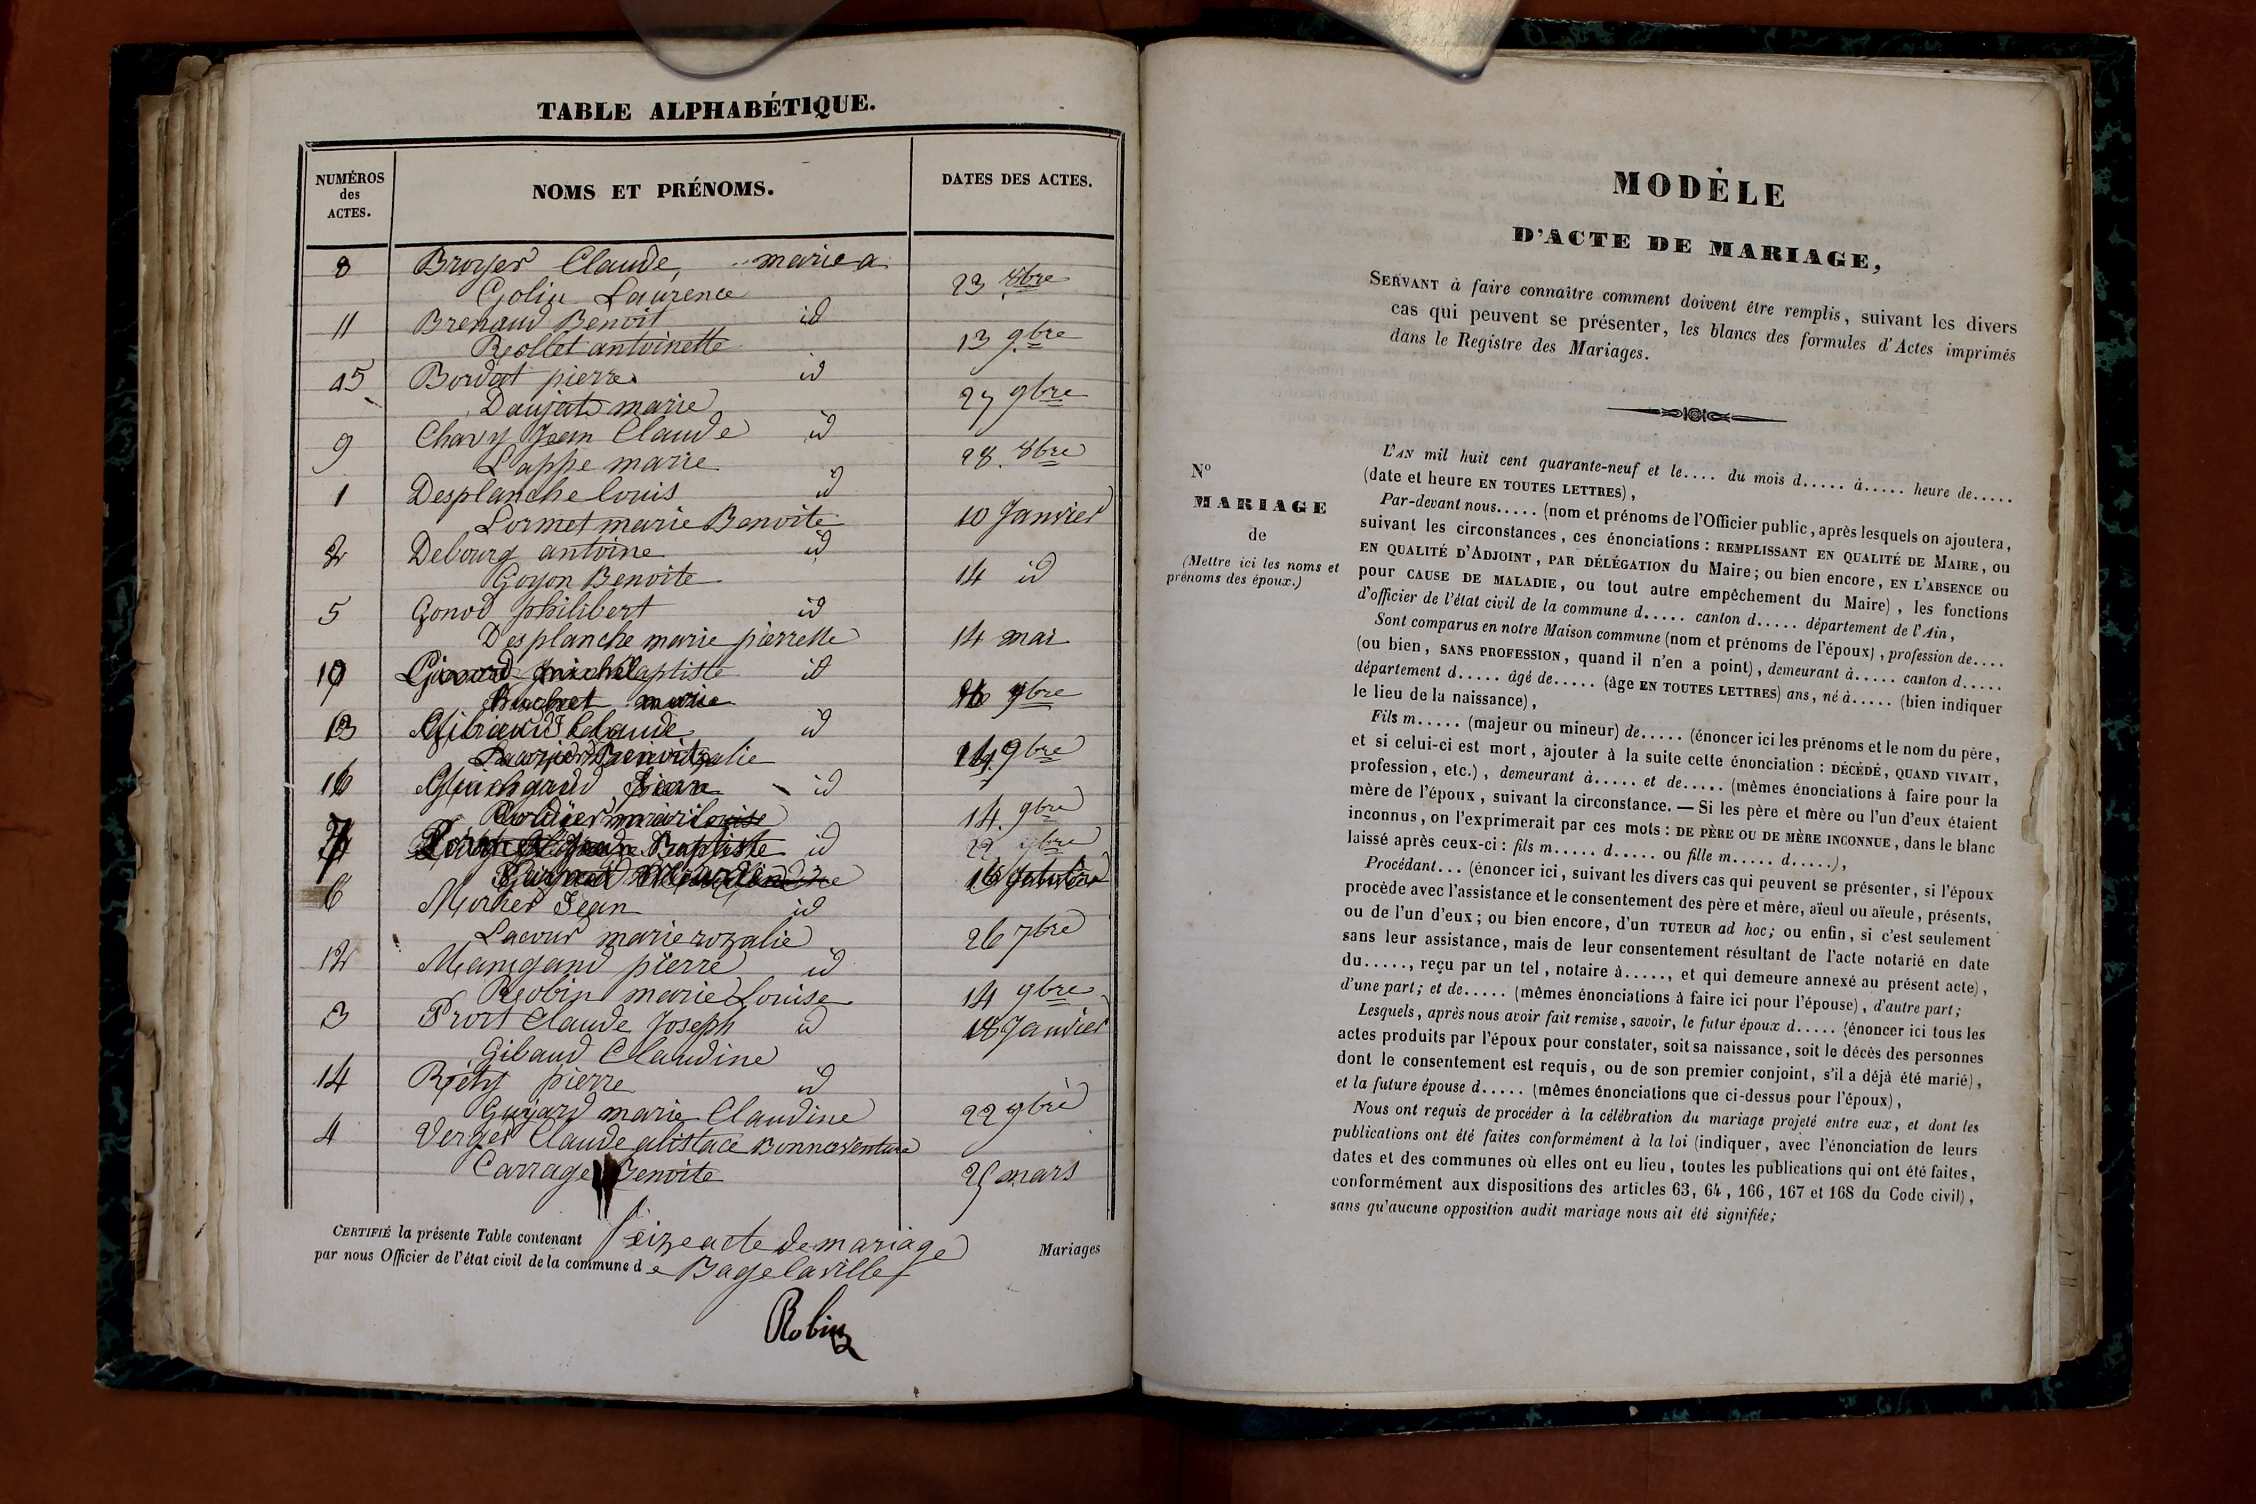 TABLE ALPHABÉTIQUE.
NUMÉROS des ACTES.
NOMS ET PRÉNOMS.
DATES DES ACTES.
8 Broyer Claude, marie a
Golin Laurence 23 8bre
11 Brenaud Benoit id
Reollet antoinette 13 9bre
15 Bordat pierre id
Daujat marie 27 9bre
9 Chavy Jean Claude id
Lappe marie 28 8bre
1 Desplanche louis id
Lormet marie Benoite 10 Janvier
2 Debourg antoine id
Goyon Benoite 14 id
5 Gonod philibert id
Desplanche marie pierrette 14 mai
10 id
marie 9bre
13 Claude id
9bre
16 id
14 9bre
Baptiste id
6 Morier Jean id
Lacour marie rozalie 26 7bre
12 Manigand pierre id
Robin marie Louise 14 9bre
3 Prost Claude Joseph id 18 Janvier
Gibaud Claudine
14 Réty pierre id
Guyard marie Claudine 22 9bre
4 Verger Claude Bonnaventure
Carrage Benoite 25 mars
CERTIFIÉ la présente Table contenant Seize acte de mariage Mariages
par nous Officier de l'état civil de la commune de Bagelaville
Robin
MODÈLE
D'ACTE DE MARIAGE,
SERVANT à faire connaître comment doivent être remplis, suivant les divers
cas qui peuvent se présenter, les blancs des formules d'Actes imprimés
dans le Registre des Mariages.
N°
MARIAGE
de
(Mettre ici les noms et
prénoms des époux.)
L'AN mil huit cent quarante-neuf et le.... du mois d..... à..... heure de.....
(date et heure EN TOUTES LETTRES),
Par-devant nous..... (nom et prénoms de l'Officier public, après lesquels on ajoutera,
suivant les circonstances, ces énonciations : REMPLISSANT EN QUALITÉ DE MAIRE, ou
EN QUALITÉ D'ADJOINT, PAR DÉLÉGATION du Maire; ou bien encore, EN L'ABSENCE ou
pour CAUSE DE MALADIE, ou tout autre empêchement du Maire), les fonctions
d'officier de l'état civil de la commune d..... canton d..... département de l'Ain,
Sont comparus en notre Maison commune (nom et prénoms de l'époux), profession de....
(ou bien, SANS PROFESSION, quand il n'en a point), demeurant à..... canton d.....
département d..... âgé de..... (âge EN TOUTES LETTRES) ans, né à..... (bien indiquer
le lieu de la naissance),
Fils m..... (majeur ou mineur) de..... (énoncer ici les prénoms et le nom du père,
et si celui-ci est mort, ajouter à la suite cette énonciation : DÉCÉDÉ, QUAND VIVAIT,
profession, etc.), demeurant à..... et de..... (mêmes énonciations à faire pour la
mère de l'époux, suivant la circonstance. — Si les père et mère ou l'un d'eux étaient
inconnus, on l'exprimerait par ces mots : DE PÈRE OU DE MÈRE INCONNUE, dans le blanc
laissé après ceux-ci : fils m..... d..... ou fille m..... d.....),
Procédant... (énoncer ici, suivant les divers cas qui peuvent se présenter, si l'époux
procède avec l'assistance et le consentement des père et mère, aïeul ou aïeule, présents,
ou de l'un d'eux; ou bien encore, d'un TUTEUR ad hoc; ou enfin, si c'est seulement
sans leur assistance, mais de leur consentement résultant de l'acte notarié en date
du....., reçu par un tel, notaire à....., et qui demeure annexé au présent acte),
d'une part; et de..... (mêmes énonciations à faire ici pour l'épouse), d'autre part;
Lesquels, après nous avoir fait remise, savoir, le futur époux d..... (énoncer ici tous les
actes produits par l'époux pour constater, soit sa naissance, soit le décès des personnes
dont le consentement est requis, ou de son premier conjoint, s'il a déjà été marié),
et la future épouse d..... (mêmes énonciations que ci-dessus pour l'époux),
Nous ont requis de procéder à la célébration du mariage projeté entre eux, et dont les
publications ont été faites conformément à la loi (indiquer, avec l'énonciation de leurs
dates et des communes où elles ont eu lieu, toutes les publications qui ont été faites,
conformément aux dispositions des articles 63, 64, 166, 167 et 168 du Code civil),
sans qu'aucune opposition audit mariage nous ait été signifiée;